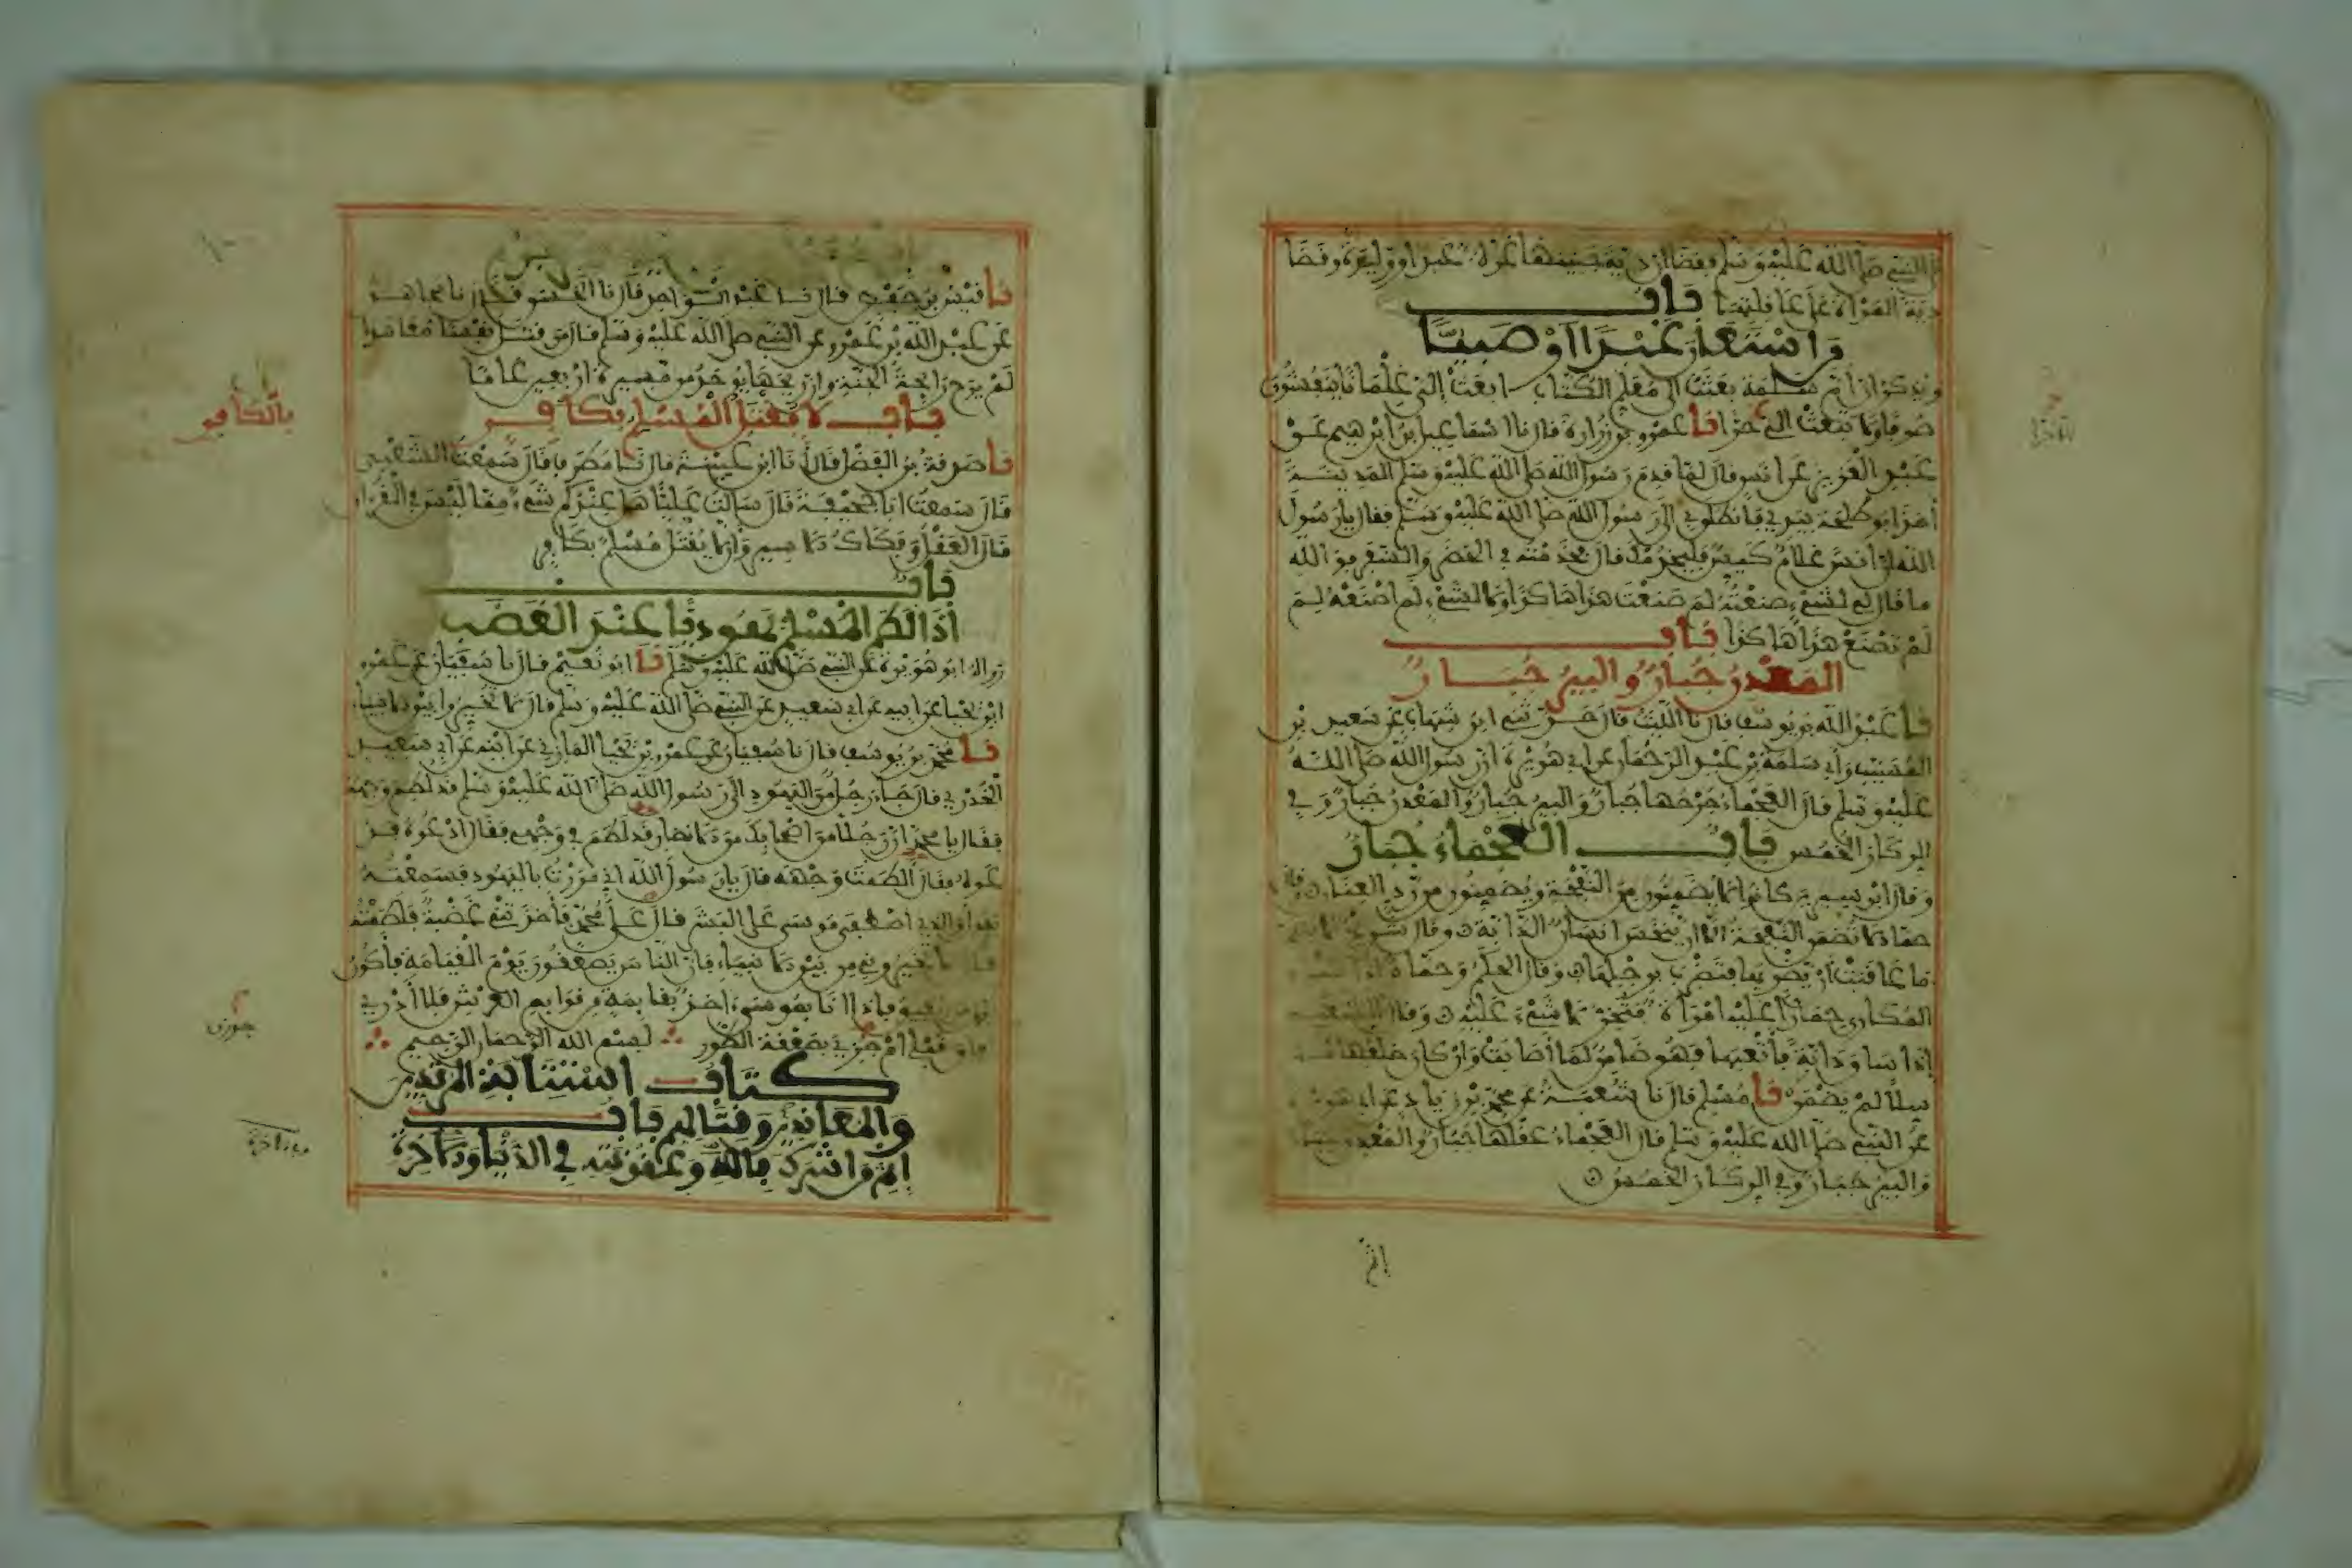 النبي صلى الله عليه وسلم فقضا ان دية جنينها غرة عبد او وليدة وقضا
دية المراة على عاقلتها باب
من استعار عبدا او صبيا
ويذكر ان ام سلمة بعثت الى معلم الكتاب ابعث الي غلمانا ينفشون
صوفا ولا تبعث الي حرا نا عمرو بن زرارة قال نا اسماعيل بن ابرهيم عن
عبد العزيز عن انس قال لما قدم رسول الله صلى الله عليه وسلم المدينة
اخذ ابو طلحة بيدي فانطلق بي الى رسول الله صلى الله عليه وسلم فقال يا رسول
الله ان انسا غلام كيس فليخدمك قال فخدمته في الحضر والسفر فو الله
ما قال لي لشيء صنعته لم صنعت هذا هاكذا ولا لشيء لم اصنعه لم
لم تصنع هذا هاكذا باب
المعدن جبار والبير جبار
نا عبد الله بن يوسف قال نا الليث قال حدثني ابن شهاب عن سعيد بن
المسيب وابي سلمة بن عبد الرحمان عن ابي هريرة ان رسول الله صلى الله
عليه وسلم قال العجماء جرحها جبار والبير جبار والمعدن جبار وفي
الركاز الخمس باب العجماء جبار
وقال ابن سيرين كانوا لا يضمنون من النفحة ويضمنون من رد العنان وقال
حماد لا تضمن النفحة الا ان ينخس انسان الدابة وقال شريح لا تضمن
ما عاقبت ان يضربها فتضرب برجلها وقال الحكم وحماد اذا ساق
المكاري حمارا عليه امراة فتخر لا شيء عليه وقال الشعبي
اذا ساق دابة فاتعبها فهو ضامن لما اصابت وان كان خلفها مترسلا
لم يضمن نا مسلم قال نا شعبة عن محمد بن زياد عن ابي هريرة
عن النبي صلى الله عليه وسلم قال العجماء عقلها جبار والمعدن جبار
والبير جبار وفي الركاز الخمس
اثم
نا قيس بن حفص قال نا عبد الواحد قال نا الحسن قال نا مجاهد
عن عبد الله بن عمرو عن النبي صلى الله عليه وسلم قال من قتل نفسا معاهدا
لم يرح رائحة الجنة وان ريحها يوجد من مسيرة اربعين عاما
باب لا يقتل المسلم بكافر
بالكافر
نا صدقة بن الفضل قال انا ابن عيينة قال نا مطرف قال سمعت الشعبي
قال سمعت ابا جحيفة قال سالت عليا هل عندكم شيء مما ليس في القران
قال العقل وفكاك الاسير وان لا يقتل مسلم بكافر
باب
اذا لطم المسلم يهوديا عند الغضب
رواه ابو هريرة عن النبي صلى الله عليه وسلم نا ابو نعيم قال نا سفيان عن عمرو
ابن يحيا عن ابيه عن ابي سعيد عن النبي صلى الله عليه وسلم قال لا تخيروا بين الانبياء
نا محمد بن يوسف قال نا سفيان عن عمرو بن يحيا المازني عن ابيه عن ابي سعيد
الخدري قال جاء رجل من اليهود الى رسول الله صلى الله عليه وسلم قد لطم وجهه
فقال يا محمد ان رجلا من اصحابك من الانصار قد لطم في وجهي فقال ادعوه
فدعوه فقال الطمت وجهه قال يا رسول الله اني مررت باليهود فسمعته
يقول والذي اصطفى موسى على البشر قال على محمد فاخذتني غضبة فلطمته
قال لا تخيروني من بين الانبياء فان الناس يصعقون يوم القيامة فاكون
اول من يفيق فاذا انا بموسى اخذ بقائمة من قوائم العرش فلا ادري
افاق قبلي ام جزي بصعقة الطور بسم الله الرحمان الرحيم
جوزي
كتاب استتابة المرتدين
والمعاندين وقتالهم باب
اثم من اشرك بالله وعقوبته في الدنيا والاخرة